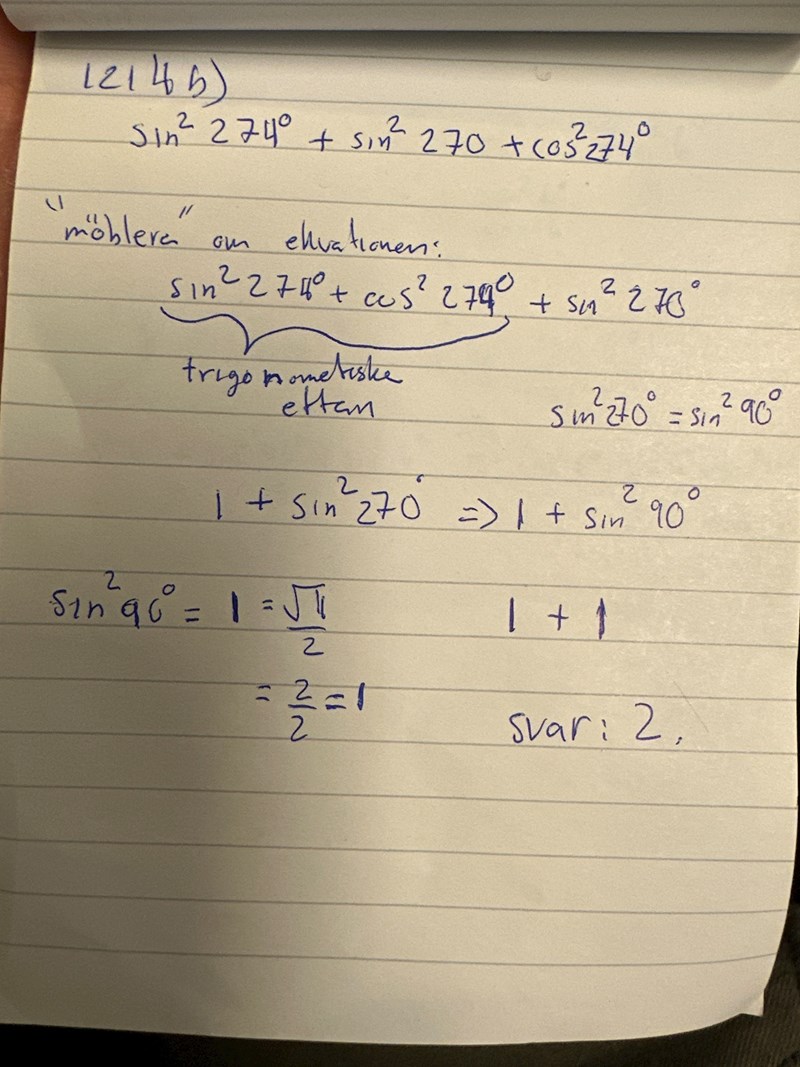 1214 b)
sin² 274° + sin² 270 + cos² 274°
"möblera" om ekvationen:
sin² 274° + cos² 274° + sin² 270°
trigonometriska
ettan
sin² 270° = sin² 90°
1 + sin² 270° => 1 + sin² 90°
sin² 90° = 1 = √4/2
= 2/2 = 1
1 + 1
svar: 2.